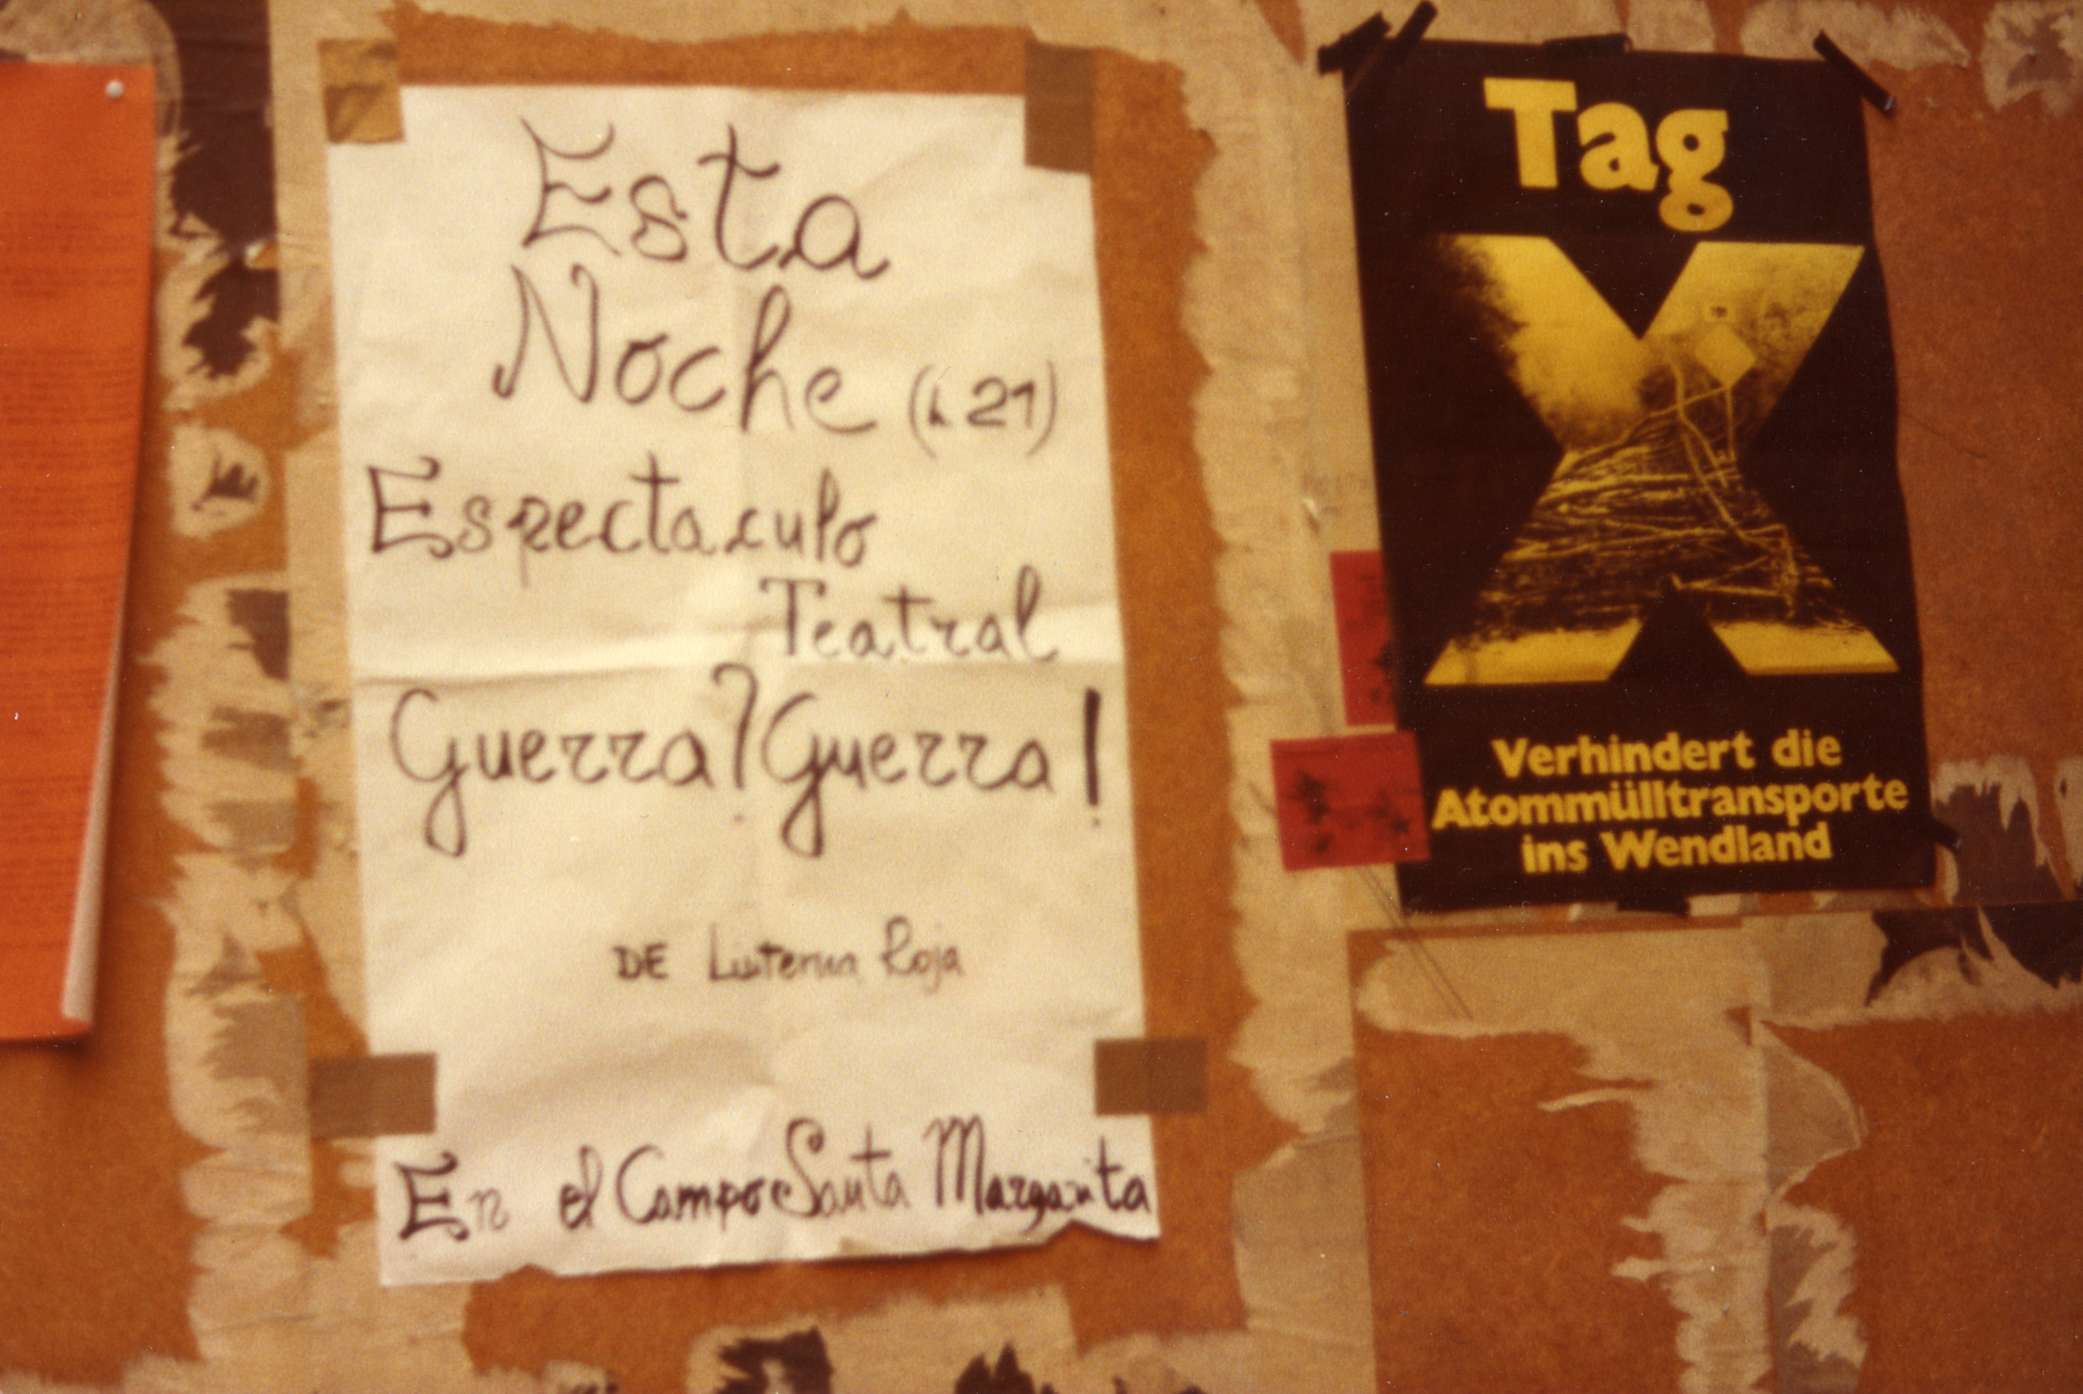 Esta
Noche (h. 21)
Espectaculo
Teatral
Guerra? Guerra!
DE Roja
En el Campo Santa Margarita
Tag
X
Verhindert die
Atommülltransporte
ins Wendland